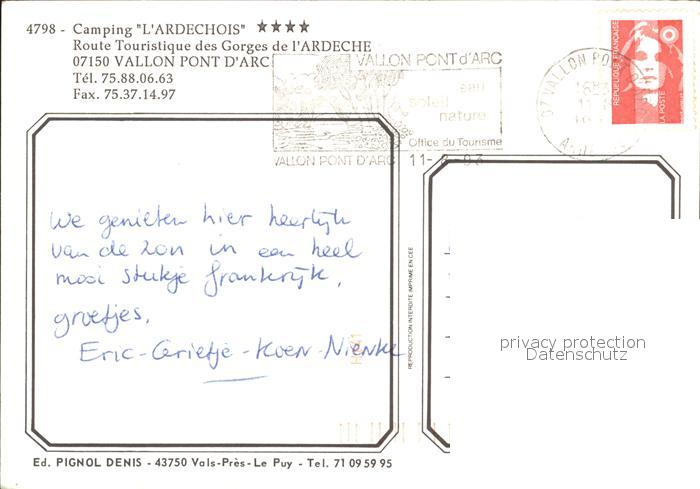 4798 - Camping "L'ARDECHOIS" ★★★★
Route Touristique des Gorges de l'ARDECHE
07150 VALLON PONT D'ARC
Tél. 75.88.06.63
Fax. 75.37.14.97
VALLON PONT d'ARC
eau
soleil
nature
Office du Tourisme
VALLON PONT D'ARC 11- -93
07 VALLON PONT
RÉPUBLIQUE FRANÇAISE
LA POSTE
We genieten hier heerlijk
van de zon in een heel
mooi stukje frankrijk.
groetjes,
Eric-Grietje-Koen-Nienke
REPRODUCTION INTERDITE IMPRIME EN CEE
privacy protection
Datenschutz
Ed. PIGNOL DENIS - 43750 Vals-Près-Le Puy - Tel. 71 09 59 95